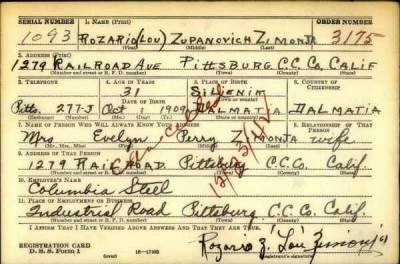 SERIAL NUMBER 1. NAME (Print) ORDER NUMBER
1093 ROZARIO (LOU) ZUPANOVICH ZIMONJA 3175
(First) (Middle) (Last)
2. ADDRESS (Print)
1279 RAILROAD AVE PITTSBURG. C.C. Co, CALIF
(Number and street or R. F. D. number) (Town) (County) (State)
3. TELEPHONE 4. AGE IN YEARS 5. PLACE OF BIRTH 6. COUNTRY OF CITIZENSHIP
31 SILJENIM
DATE OF BIRTH
Pitts. 277-J Oct 1 1909 DALMATIA DALMATIA
(Exchange) (Number) (Mo.) (Day) (Yr.) (State or county)
7. NAME OF PERSON WHO WILL ALWAYS KNOW YOUR ADDRESS 8. RELATIONSHIP OF THAT PERSON
Mrs Evelyn Perry ZIMONJA wife
(Mr., Mrs., Miss) (First) (Middle) (Last)
9. ADDRESS OF THAT PERSON
1279 RAILROAD Pittsburg C.C. Co. Calif.
(Number and street or R. F. D. number) (Town) (County) (State)
10. EMPLOYER'S NAME
Columbia Steel
11. PLACE OF EMPLOYMENT OR BUSINESS
Industrial Road Pittsburg C.C. Co. Calif.
(Number and street or R. F. D. number) (Town) (County) (State)
I AFFIRM THAT I HAVE VERIFIED ABOVE ANSWERS AND THAT THEY ARE TRUE.
REGISTRATION CARD
D. S. S. Form 1 (over) 16—17105
Rozario Z. "Lou" Zimonja
(Registrant's signature)